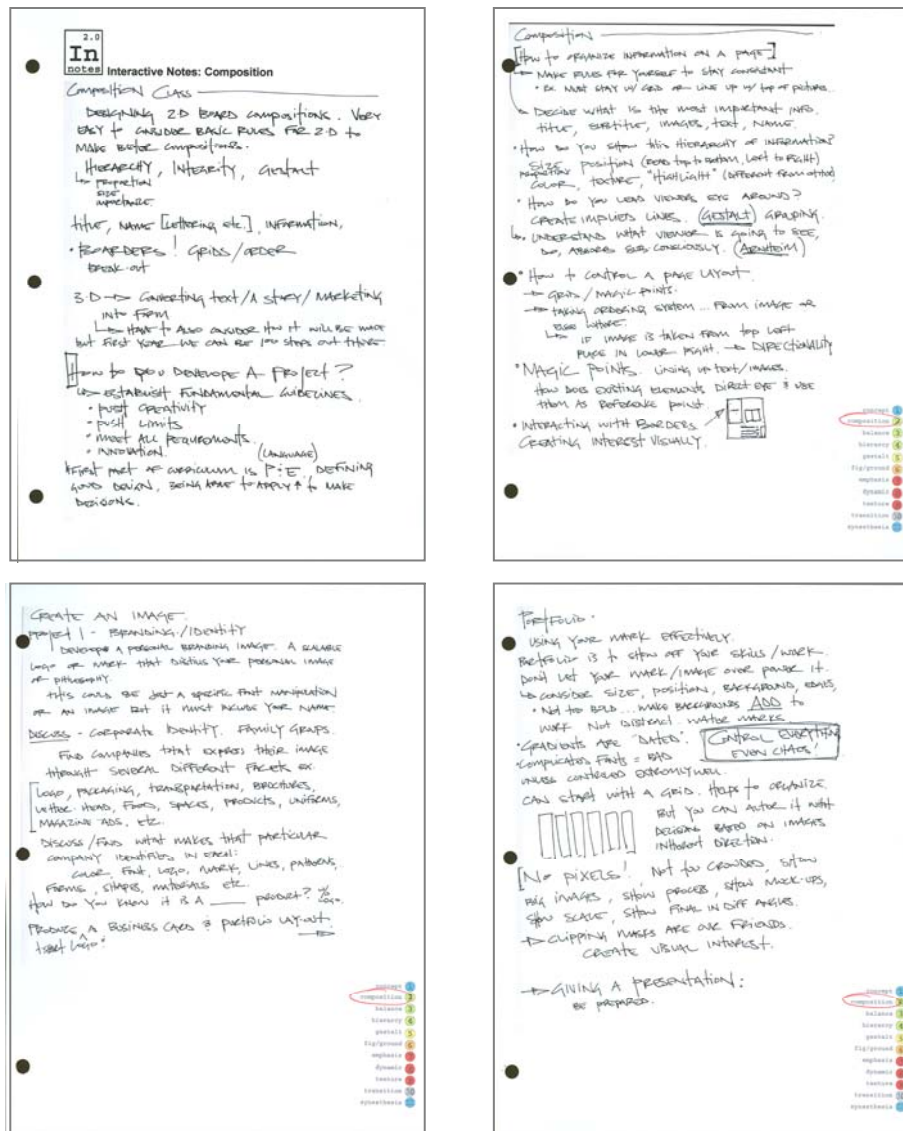 2.0
In
notes Interactive Notes: Composition
Composition Class
Designing 2D board compositions. Very
easy to consider basic rules for 2-D to
make better compositions.
Hierarchy, Integrity, Gestalt
proportion
size
importance
title, name [lettering etc.] information,
• Boarders! Grids/order
break-out
3-D → converting text/a story/marketing
into form
→ have to also consider how it will be made
but first year we can be 100 steps out there.
How do you develope a project?
→ establish fundamental guidelines
• push creativity
• push limits
• meet all requirements.
• innovation. (language)
*First part of curriculum is P:E, defining
good design, being able to apply ↑ to make
decisions.
Composition
[How to organize information on a page]
→ Make rules for yourself to stay consistant
• ex. must stay w/ grid or line up w/ top of picture...
→ Decide what is the most important info.
title, subtitle, images, text, name.
• How do you show this hierarchy of information?
size position (read top to bottom, left to right)
proportion color, texture, "highlight" (different from others)
• How do you lead viewers eye around?
Create implied lines. (Gestalt) grouping.
→ Understand what viewer is going to see,
do, absorb sub-consciously. (Arnheim)
• How to control a page layout
→ Grids/magic points.
→ taking ordering system... from image or
else where.
→ if image is taken from top left
place in lower right. → directionality
• Magic points. Lining up text/images.
How does existing elements direct eye & use
them as reference point.
• Interacting with borders
Creating interest visually.
concept 1
composition 2
balance 3
hierarcy 4
gestalt 5
fig/ground 6
emphasis 7
dynamic 8
texture 9
transition 10
synesthesia
Create an image.
Project 1 - Branding/Identity
Develope a personal branding image. A scalable
logo or mark that distills your personal image
or philosophy.
this could be just a specific font manipulation
or an image but it must include your name.
Discuss - Corporate Identity. Family Groups.
Find companies that express their image
throught several different facets ex.
[Logo, packaging, transportation, brochures,
letter-head, food, spaces, products, uniforms,
magazine ads, etc.
Discuss/Find what makes that particular
company identified in each:
color, font, logo, mark, lines, patterns,
forms, shapes, materials etc.
How do you know it is a ____ product? w/o logo.
Produce a business card & portfolio layout.
start logo!
concept 1
composition 2
balance 3
hierarcy 4
gestalt 5
fig/ground 6
emphasis 7
dynamic 8
texture 9
transition 10
synesthesia
Portfolio.
Using your mark effectively.
Portfolio is to show off your skills/work.
Don't let your mark/image over power it.
→ consider size, position, background, edges,
• Not too bold... make backgrounds ADD to
work not distract. water marks
• Gradients are "dated".
Control everything
even chaos!
• Complicated fonts = bad
unless controled extromly well.
Can start with a grid. Helps to organize.
But you can alter it with
decisions based on images
inherent direction.
[No pixels! Not too crowded, show
big images, show process, show mock-ups,
show scale, show final in diff angles.
→ Clipping masks are our friends.
Create visual interest.
→ Giving a presentation:
be prepared.
concept 1
composition 2
balance 3
hierarcy 4
gestalt 5
fig/ground 6
emphasis 7
dynamic 8
texture 9
transition 10
synesthesia